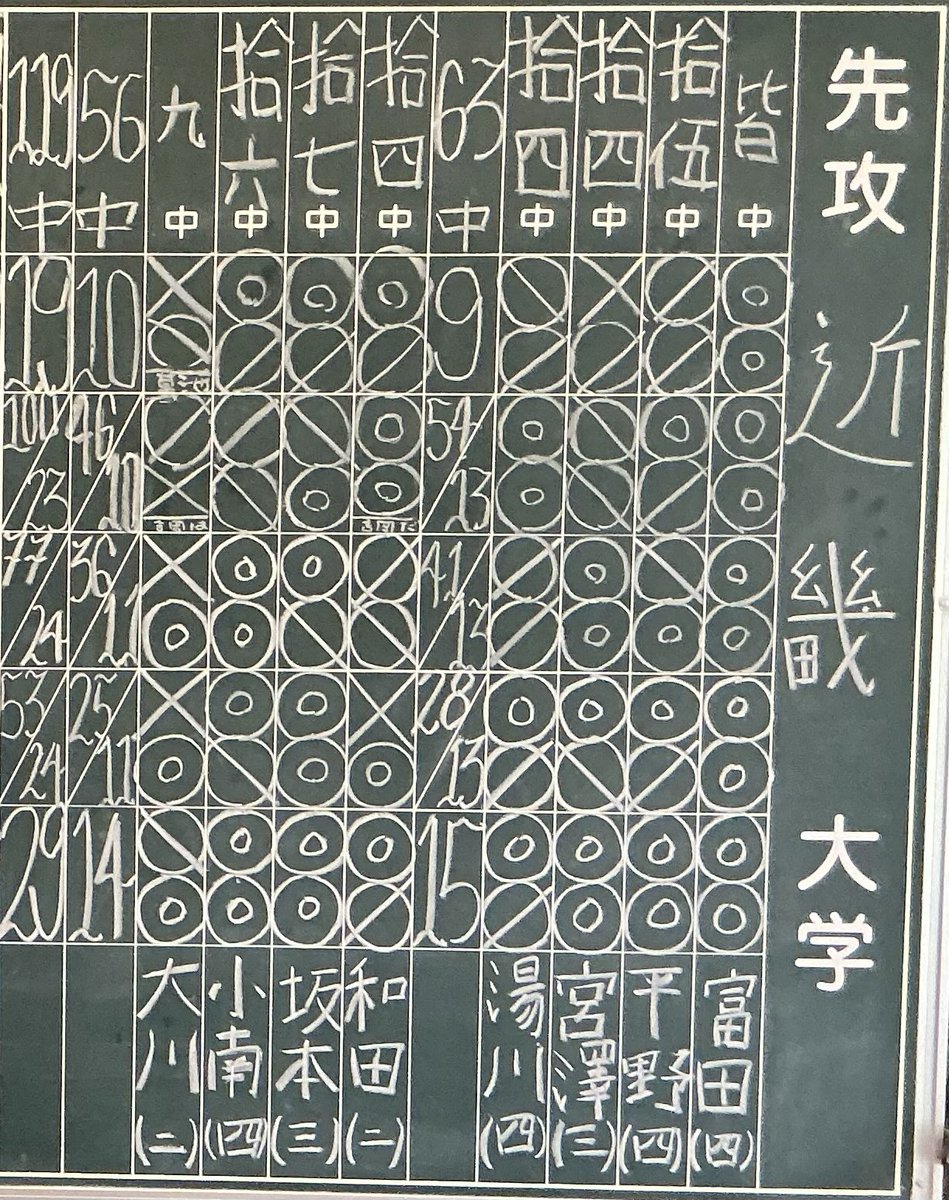 先攻
近畿
大学
皆中
拾伍中
拾四中
拾四中
63中
拾四中
拾七中
拾六中
九中
56中
119中
9
10
19
54/13
46/10
41/13
36/11
77/24
28/13
25/11
53/24
15
14
29
富田(四)
平野(四)
宮澤(三)
湯川(四)
和田(二)
坂本(三)
小南(四)
大川(二)